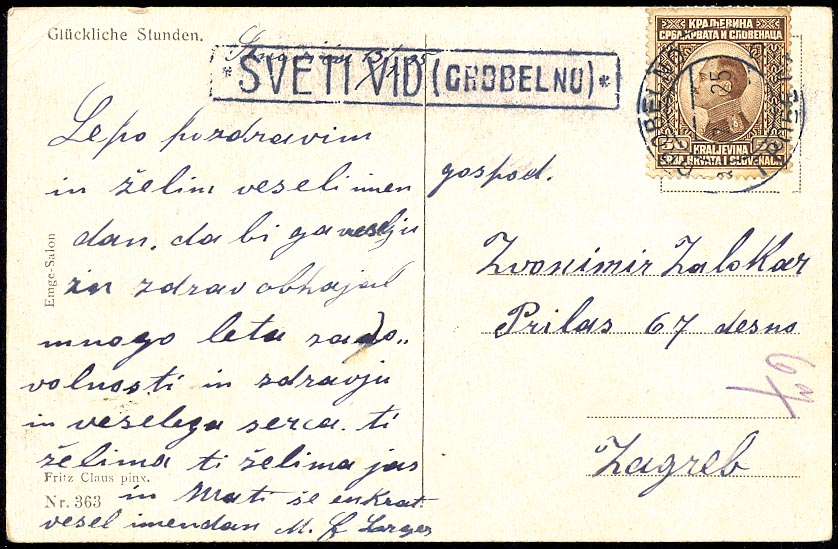 Glückliche Stunden.
13/1 25
*SVETI VID (GROBELNO)*
КРАЉЕВИНА
СРБА, ХРВАТА И СЛОВЕНАЦА
KRALJEVINA
SRBA, HRVATA I SLOVENACA
GROBELNO
25
Lepo pozdravim
in želim veseli imen
dan, da bi ga veselju
in zdrav obhajal
mnogo leta zado„
volnosti in zdravju
in veselega serca. ti
želima ti želima jas
in Mati še enkrat
vesel imendan M.
Emge-Salon
Fritz Claus pinx.
Nr. 363
gospod.
Zvonimir Zalokar
Prilas 67 desno
67
Zagreb